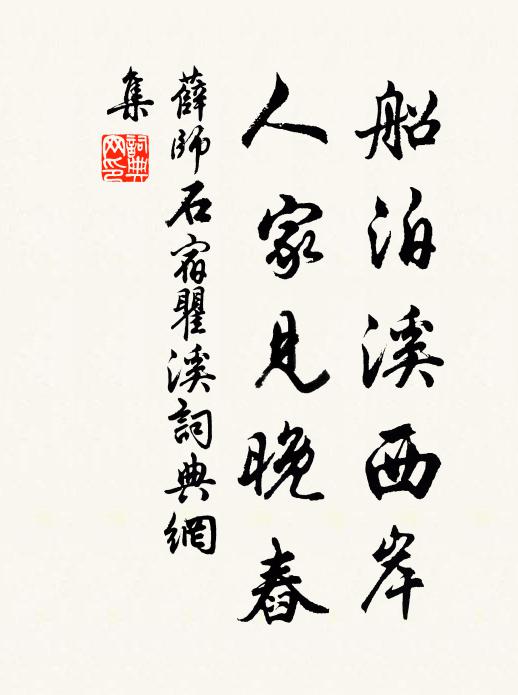 船泊溪西岸
人家見晚舂
薛師石宿瞿溪詞典網
集
詞典網印